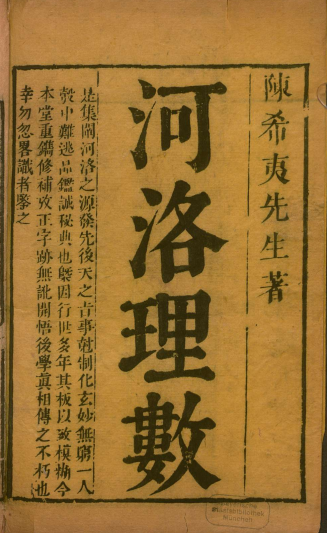 陳希夷先生著
河洛理數
是集闡河洛之源發先後天之古事尅制化玄妙無窮一人
彀中難逃品鑑誠秘典也𥘉因行世多年其板以致模糊今
本堂重鐫修補攷正字跡無訛開悟後學眞相傳之不朽也
幸勿忽畧識者鑒之
München